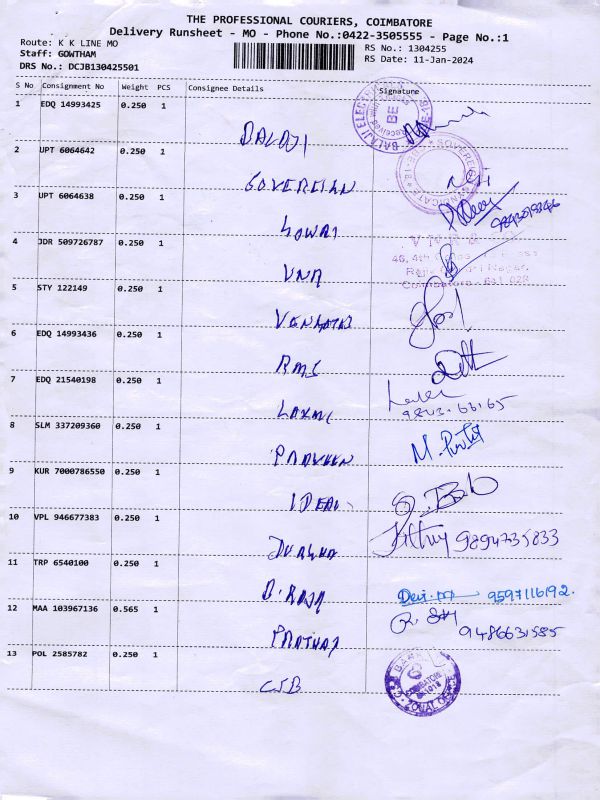 THE PROFESSIONAL COURIERS, COIMBATORE
Delivery Runsheet - MO - Phone No.:0422-3505555 - Page No.:1
Route: K K LINE MO
Staff: GOWTHAM
DRS No.: DCJB130425501
RS No.: 1304255
RS Date: 11-Jan-2024
S No Consignment No Weight PCS Consignee Details Signature
1 EDQ 14993425 0.250 1 BALAJI
2 UPT 6064642 0.250 1 GOVEREIAN
3 UPT 6064638 0.250 1 GOWRI
4 JDR 509726787 0.250 1 VNA
46, 4th
Coimbatore
5 STY 122149 0.250 1 VENKATAJ
6 EDQ 14993436 0.250 1 RMS
7 EDQ 21540198 0.250 1 LAXMI
8 SLM 337209360 0.250 1 PRAVEEN
9 KUR 7000786550 0.250 1 IDEAL
10 VPL 946677383 0.250 1 DURGHA 9894735833
11 TRP 6540100 0.250 1 D. RAJA 9597116192.
12 MAA 103967136 0.565 1 PRATHAP 9486631585
13 POL 2585782 0.250 1 CSB
COIMBATORE
ZONAL OFFICE